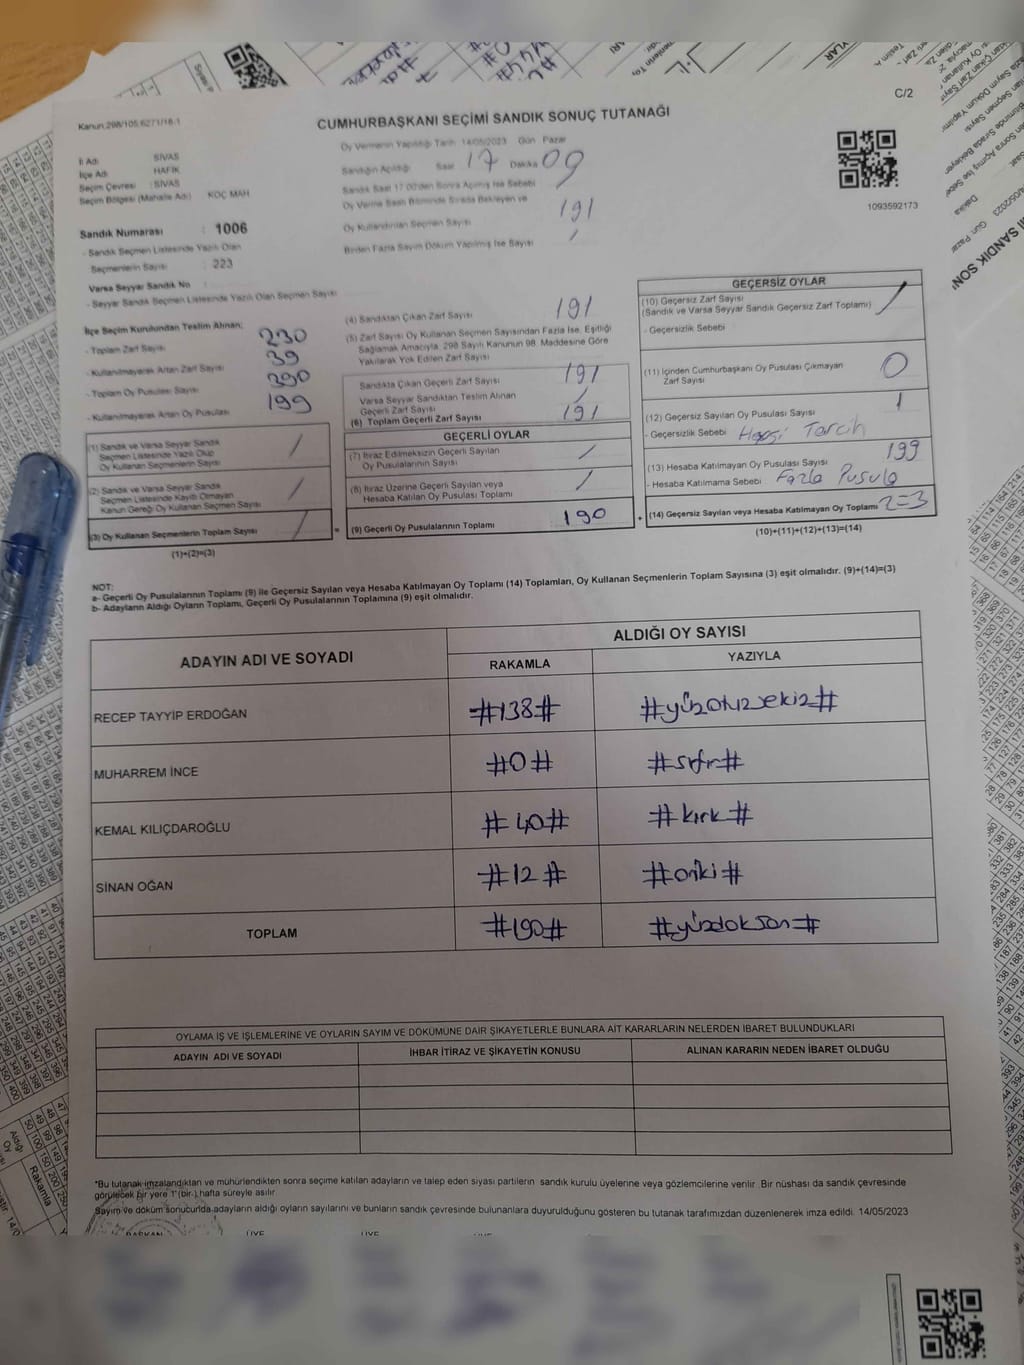 C/2
Kanun:298/105;6271/18-1
CUMHURBAŞKANI SEÇİMİ SANDIK SONUÇ TUTANAĞI
Oy Vermenin Yapıldığı Tarih: 14/05/2023 Gün Pazar
İl Adı SİVAS
İlçe Adı HAFİK
Seçim Çevresi : SİVAS
Seçim Bölgesi (Mahalle Adı) KOÇ MAH
Sandığın Açıldığı Saat 17 Dakika 09
Sandık Saat 17.00'den Sonra Açılmış İse Sebebi
Oy Verme Saati Bitiminde Sırada Bekleyen ve
Oy Kullandırılan Seçmen Sayısı 191
Birden Fazla Sayım Döküm Yapılmış İse Sayısı /
1093592173
Sandık Numarası : 1006
- Sandık Seçmen Listesinde Yazılı Olan
Seçmenlerin Sayısı : 223
Varsa Seyyar Sandık No :
- Seyyar Sandık Seçmen Listesinde Yazılı Olan Seçmen Sayısı
İlçe Seçim Kurulundan Teslim Alınan;
- Toplam Zarf Sayısı 230
- Kullanılmayarak Artan Zarf Sayısı 39
- Toplam Oy Pusulası Sayısı 390
- Kullanılmayarak Artan Oy Pusulası 199
(1) Sandık ve Varsa Seyyar Sandık
Seçmen Listesinde Yazılı Olup
Oy Kullanan Seçmenlerin Sayısı /
(2) Sandık ve Varsa Seyyar Sandık
Seçmen Listesinde Kayıtlı Olmayan
Kanun Gereği Oy Kullanan Seçmen Sayısı /
(3) Oy Kullanan Seçmenlerin Toplam Sayısı / =
(1)+(2)=(3)
(4) Sandıktan Çıkan Zarf Sayısı 191
(5) Zarf Sayısı Oy Kullanan Seçmen Sayısından Fazla İse, Eşitliği
Sağlamak Amacıyla, 298 Sayılı Kanunun 98. Maddesine Göre
Yakılarak Yok Edilen Zarf Sayısı
Sandıkta Çıkan Geçerli Zarf Sayısı 191
Varsa Seyyar Sandıktan Teslim Alınan
Geçerli Zarf Sayısı /
(6) Toplam Geçerli Zarf Sayısı 191
GEÇERLİ OYLAR
(7) İtiraz Edilmeksizin Geçerli Sayılan
Oy Pusulalarının Sayısı /
(8) İtiraz Üzerine Geçerli Sayılan veya
Hesaba Katılan Oy Pusulası Toplamı /
(9) Geçerli Oy Pusulalarının Toplamı 190 +
GEÇERSİZ OYLAR
(10) Geçersiz Zarf Sayısı
(Sandık ve Varsa Seyyar Sandık Geçersiz Zarf Toplamı) /
- Geçersizlik Sebebi
(11) İçinden Cumhurbaşkanı Oy Pusulası Çıkmayan
Zarf Sayısı 0
(12) Geçersiz Sayılan Oy Pusulası Sayısı 1
- Geçersizlik Sebebi Hepsi Tercih
(13) Hesaba Katılmayan Oy Pusulası Sayısı 199
- Hesaba Katılmama Sebebi Fazla Pusula
(14) Geçersiz Sayılan veya Hesaba Katılmayan Oy Toplamı
(10)+(11)+(12)+(13)=(14)
NOT:
a- Geçerli Oy Pusulalarının Toplamı (9) ile Geçersiz Sayılan veya Hesaba Katılmayan Oy Toplamı (14) Toplamları, Oy Kullanan Seçmenlerin Toplam Sayısına (3) eşit olmalıdır. (9)+(14)=(3)
b- Adayların Aldığı Oyların Toplamı, Geçerli Oy Pusulalarının Toplamına (9) eşit olmalıdır.
ADAYIN ADI VE SOYADI ALDIĞI OY SAYISI
RAKAMLA YAZIYLA
RECEP TAYYİP ERDOĞAN #138# #yüzotuzsekiz#
MUHARREM İNCE #0# #sıfır#
KEMAL KILIÇDAROĞLU #40# #kırk#
SİNAN OĞAN #12# #oniki#
TOPLAM #190# #yüzdokson#
OYLAMA İŞ VE İŞLEMLERİNE VE OYLARIN SAYIM VE DÖKÜMÜNE DAİR ŞİKAYETLERLE BUNLARA AİT KARARLARIN NELERDEN İBARET BULUNDUKLARI
ADAYIN ADI VE SOYADI İHBAR İTİRAZ VE ŞİKAYETİN KONUSU ALINAN KARARIN NEDEN İBARET OLDUĞU
*Bu tutanak imzalandıktan ve mühürlendikten sonra seçime katılan adayların ve talep eden siyasi partilerin sandık kurulu üyelerine veya gözlemcilerine verilir. Bir nüshası da sandık çevresinde
görülecek bir yere 1 (bir) hafta süreyle asılır.
Sayım ve döküm sonucunda adayların aldığı oyların sayılarını ve bunların sandık çevresinde bulunanlara duyurulduğunu gösteren bu tutanak tarafımızdan düzenlenerek imza edildi. 14/05/2023
BAŞKAN ÜYE ÜYE